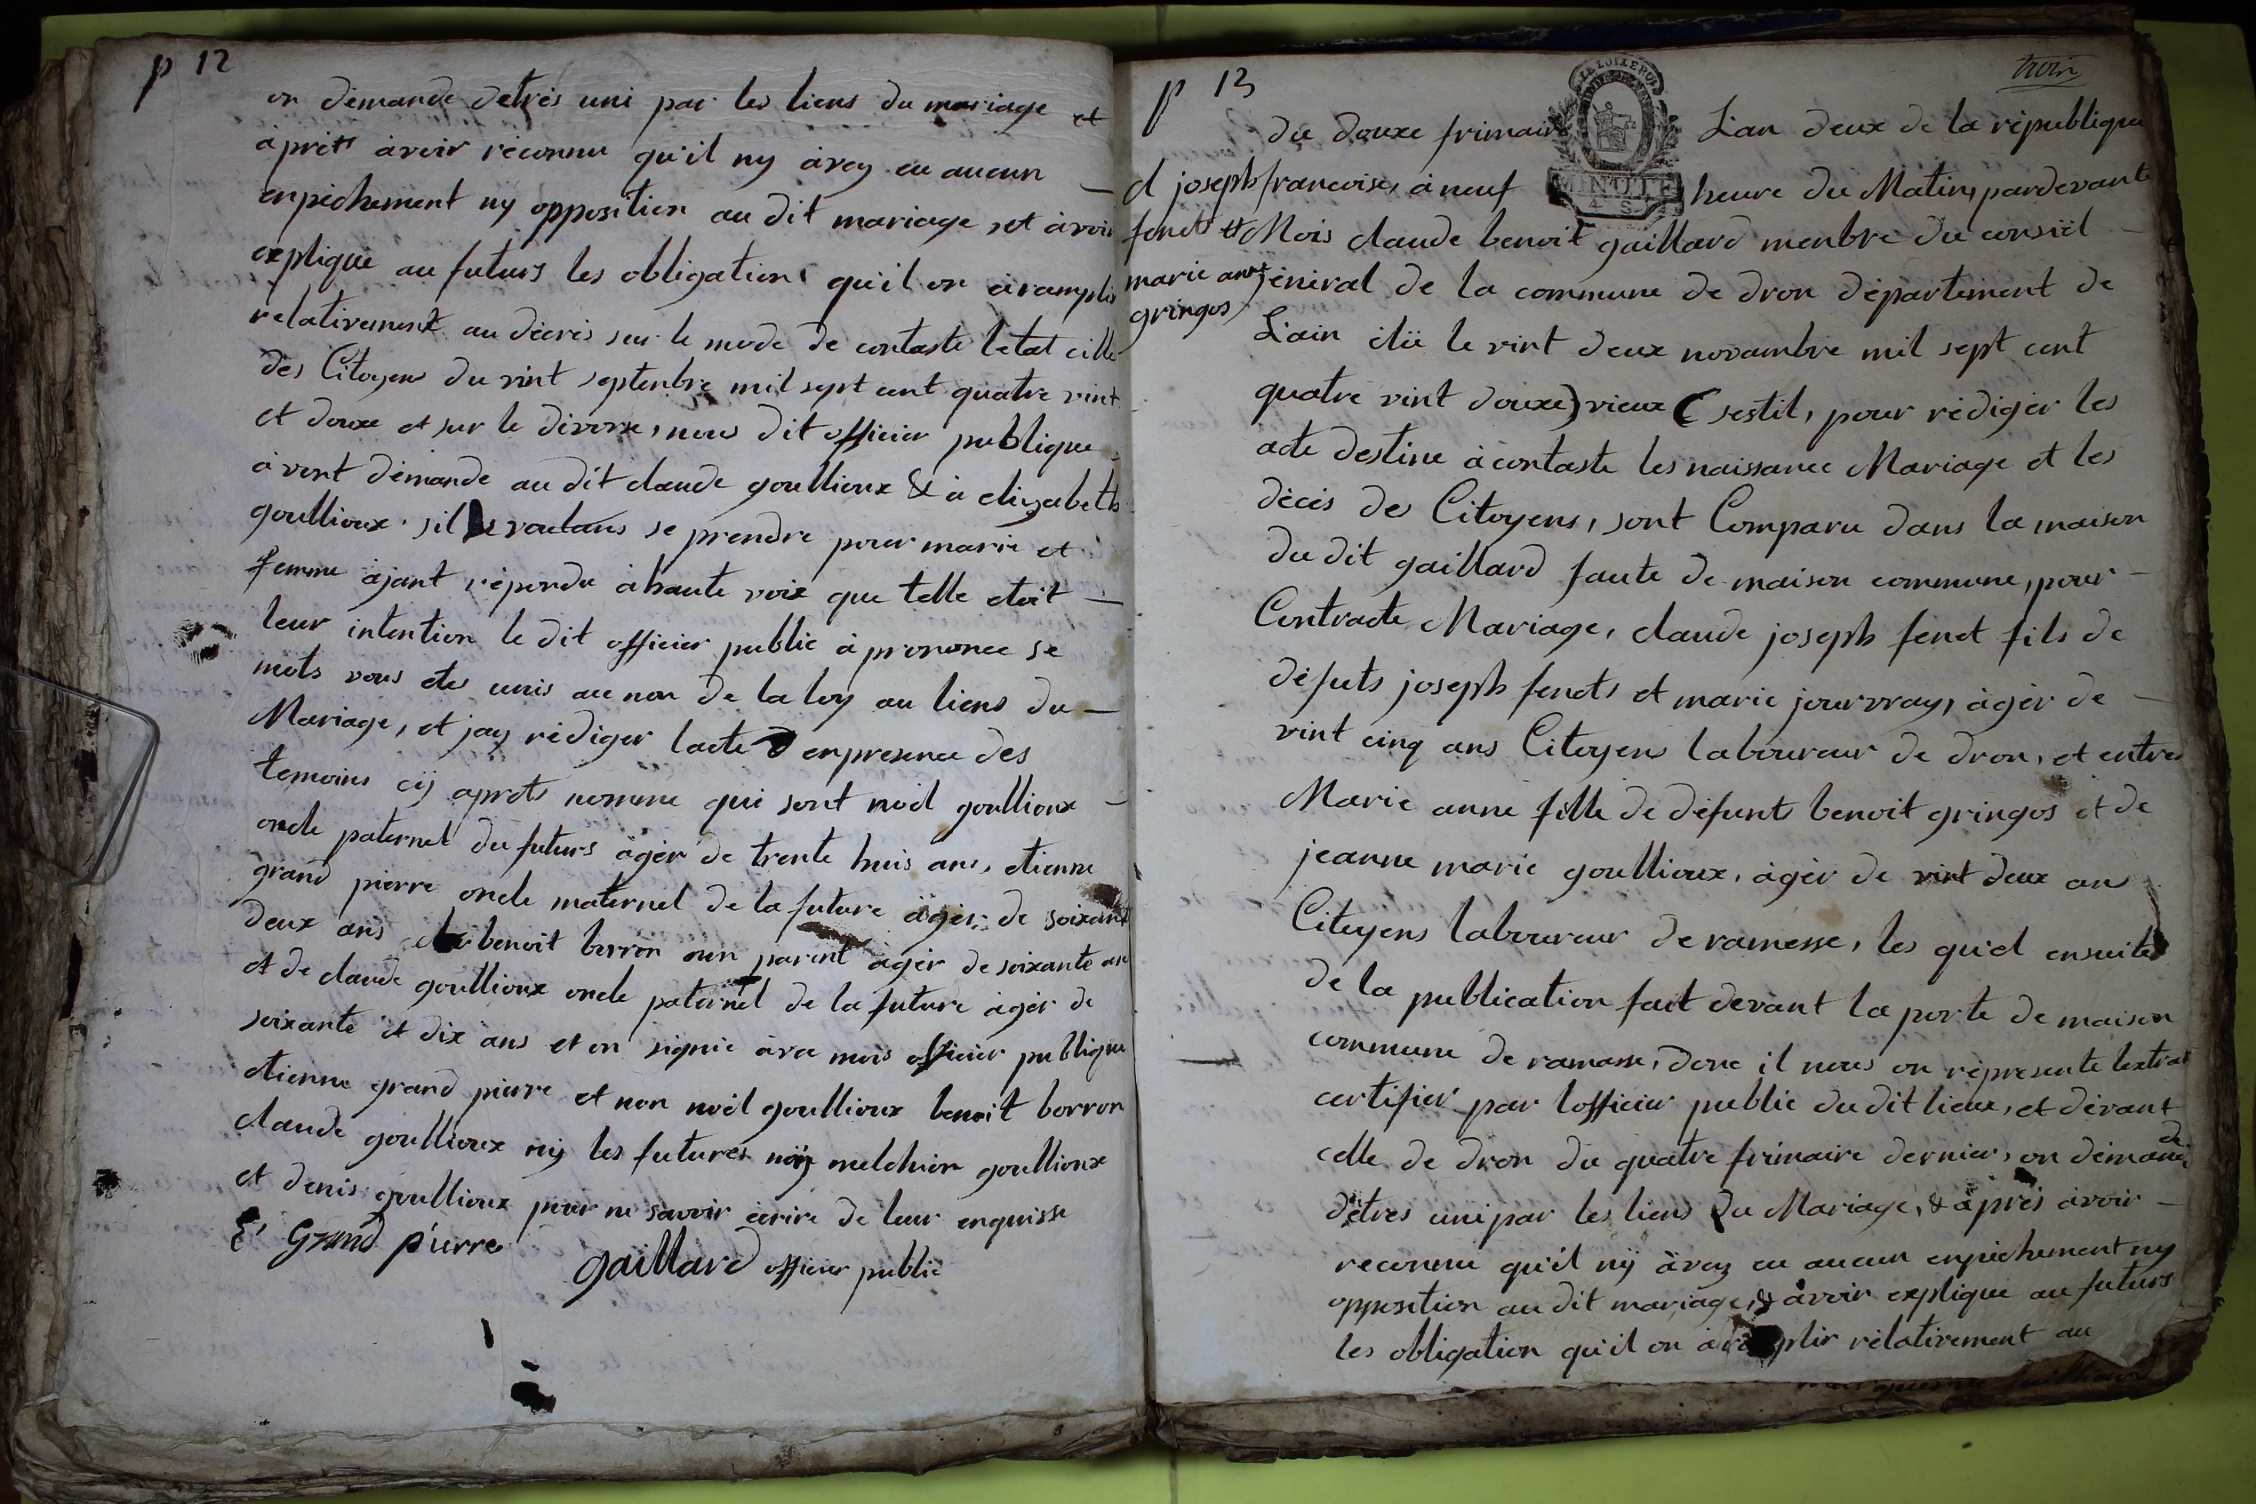 p 12
on démandé detrés uni par les liens du mariage et
àprêtt àvoir réconnu qu'il ny àvoy eu aucun —
enpêchement ny opposition au dit mariage, et àvoir
expliquée au futurs les obligation qu'il on àramplir
relativement au décrés sur le mode de contasté letat cille
des Citoyens du vint septenbre mil sept cent quatre vint
et douxe et sur le divorse, nous dit officier publique
àvont démandé au dit claude goullioux & à elizabeth
goullioux sil voulans se prendre pour marie et
femme àjant répondu àhaute voix que telle etoit —
leur intention le dit officier public à prononcé se
mots vous etes unis au non de la loy au liens du —
Mariage, et jay rédiger lacte enpresence des
temoins cÿ aprets nommé qui sont noël goullioux —
oncle paternel du futurs âgér de trente huis ans, etienne
grand pierre oncle maternel de la future âgér de soixante
deux ans benoit borron parent âgér de soixante an
et de claude goullioux oncle paternel de la future âgér de
soixante et dix ans et on signié àvec mois officier publique
etienne grand pierre et non noël goullioux benoit borron
claude goullioux ny les futures nÿ melchior goullioux
et denis goullioux pour ne savoir écrire de leur enquisse
E' Grand pierre
gaillard officier public
p 13
troin
du douxe frimaire Lan deux de la république
LA LOI LE ROI
MINUTE
4 S
d joseph
fenets et
marie anne
gringos
francoise, à neuf heure du Matin, pardevant
Mois claude benoit gaillard menbre du consiel —
jénéral de la commune de dron département de
Lain élü le vint deux novambre mil sept cent
quatre vint douxe) vieux ( sestil, pour rédigér les
acte destine àcontaste les naissance Mariage et les
décés des Citoyens, sont Comparu dans la maison
du dit gaillard faute de maison commune, pour —
Contracte Mariage, claude joseph fenet fils de
défuts joseph fenets et marie jourvray, âgér de —
vint cinq ans Citoyens laboureur de dron, et entres
Marie anne fille de défunts benoit gringos et de
jeanne marie goullioux, âgér de vint deux ans
Citoyens laboureur deramesse, les quel ensuite
de la publication fait devant la porte de maison
commune de ramasse, donc il nous on répresente lextrat
certifier par lofficier public du dit lieux, et dévant
celle de dron du quatre frimaire dernier, on démandé
détres uni par les liens du Mariage, & âprés àvoir —
reconnu qu'il nÿ àvoy eu aucun enpéchement ny
opposition au dit mariage, & àvoir explique au futurs
les obligation qu'il on àramplir rélativement au